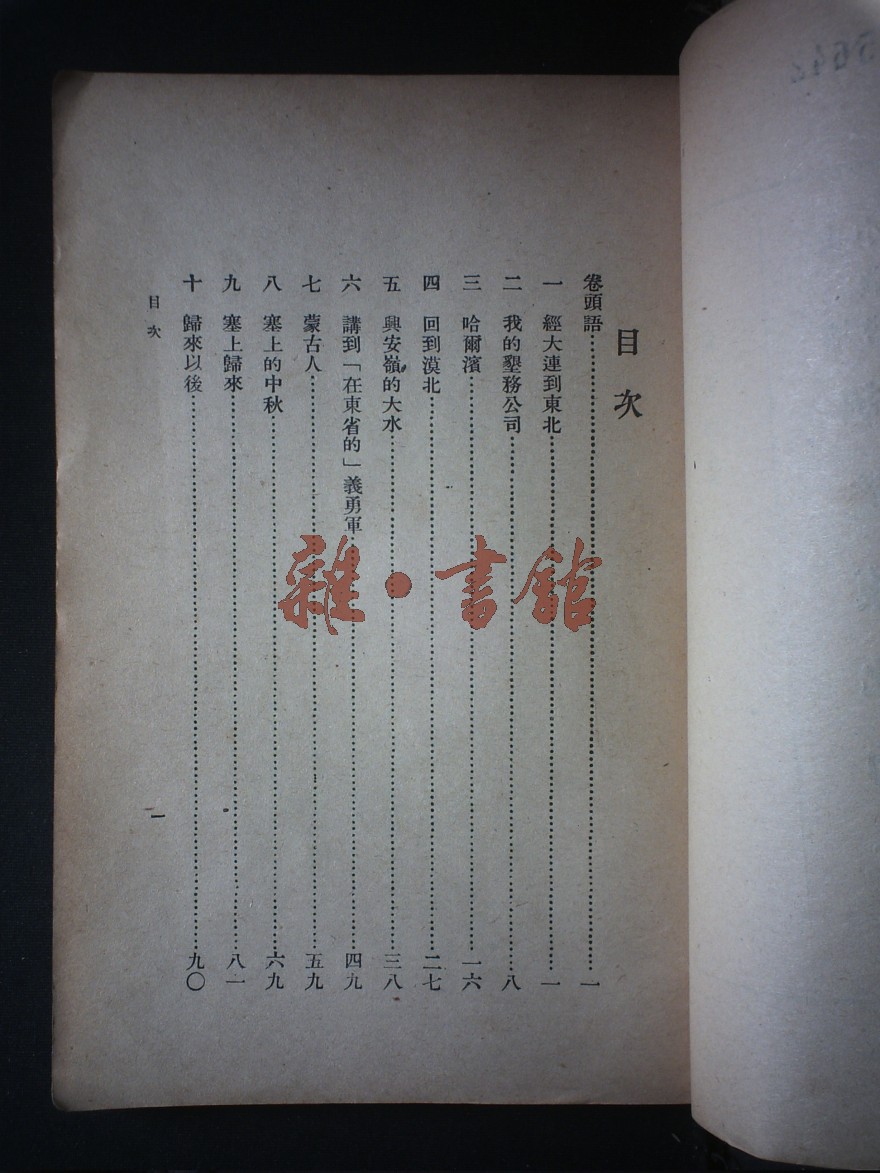 目次
卷頭語……一
一 經大連到東北……一
二 我的墾務公司……八
三 哈爾濱……一六
四 回到漠北……二七
五 興安嶺的大水……三八
六 講到「在東省的」義勇軍……四九
七 蒙古人……五九
八 塞上的中秋……六九
九 塞上歸來……八一
十 歸來以後……九〇
目次 一
雜·書館